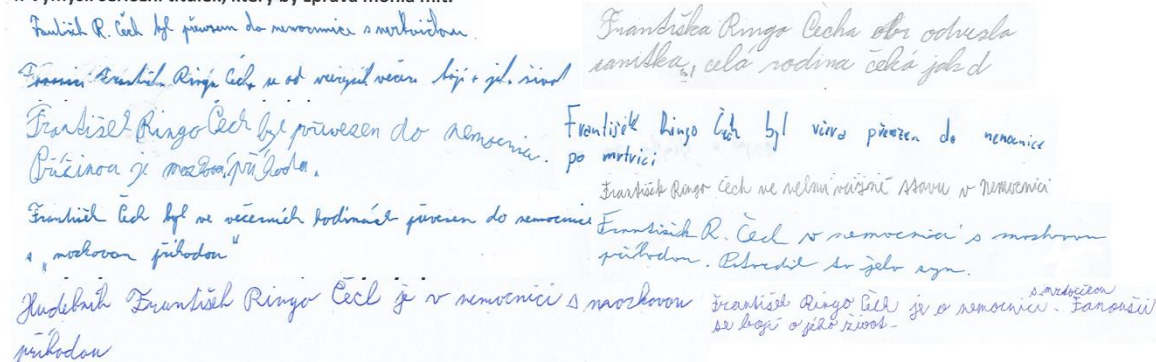 4. Vymysli seriózní titulek, který by zpráva mohla mít.
František R. Čech byl převezen do nemocnice s
František Ringo Čech, se od včerejší večera bojí o jeho život
František Ringo Čech byl převezen do nemocnice.
Příčinou je mozková příhoda.
František Čech byl ve večerních hodinách převezen do nemocnice
s „mozkovou příhodou"
Hudebník František Ringo Čech je v nemocnici s mozkovou
příhodou
Františka Ringo Čecha odvezla
sanitka, celá rodina čeká jak d
František Ringo Čech byl včera převezen do nemocnice
po mrtvici
František Ringo Čech ve velmi vážné stavu v nemocnici
František R. Čech v nemocnici s mozkovou
příhodou. Potvrdil to jeho syn.
František Ringo Čech je v nemocnici s mrtvicí. Fanoušci
se bojí o jeho život.